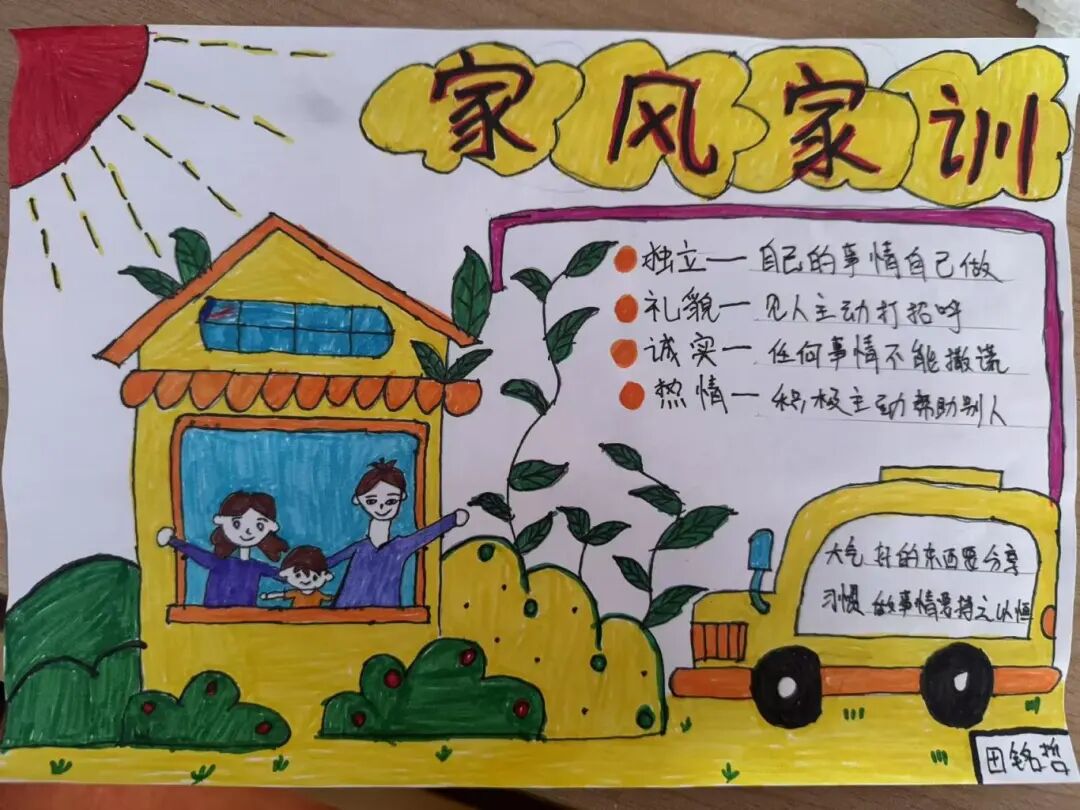 家风家训
独立一 自己的事情自己做
礼貌一 见人主动打招呼
诚实一 任何事情不能撒谎
热情一 积极主动帮助别人
大气 好的东西要分享
习惯 做事情要持之以恒
田铭哲